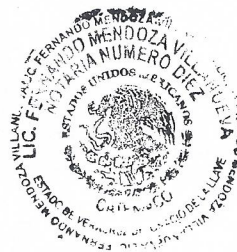 LIC. FERNANDO MENDOZA VILLANUEVA
NOTARIA NUMERO DIEZ
ESTADOS UNIDOS MEXICANOS
ESTADO DE VERACRUZ DE IGNACIO DE LA LLAVE
LIC. FERNANDO MENDOZA VILLANUEVA